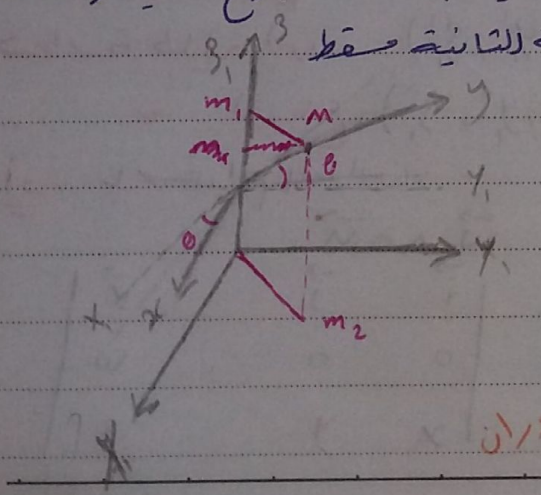 الثانية مسقط
z₁ z
m₁ M y
θ y₁
θ
y₁
x₁ x
m₂
x₁